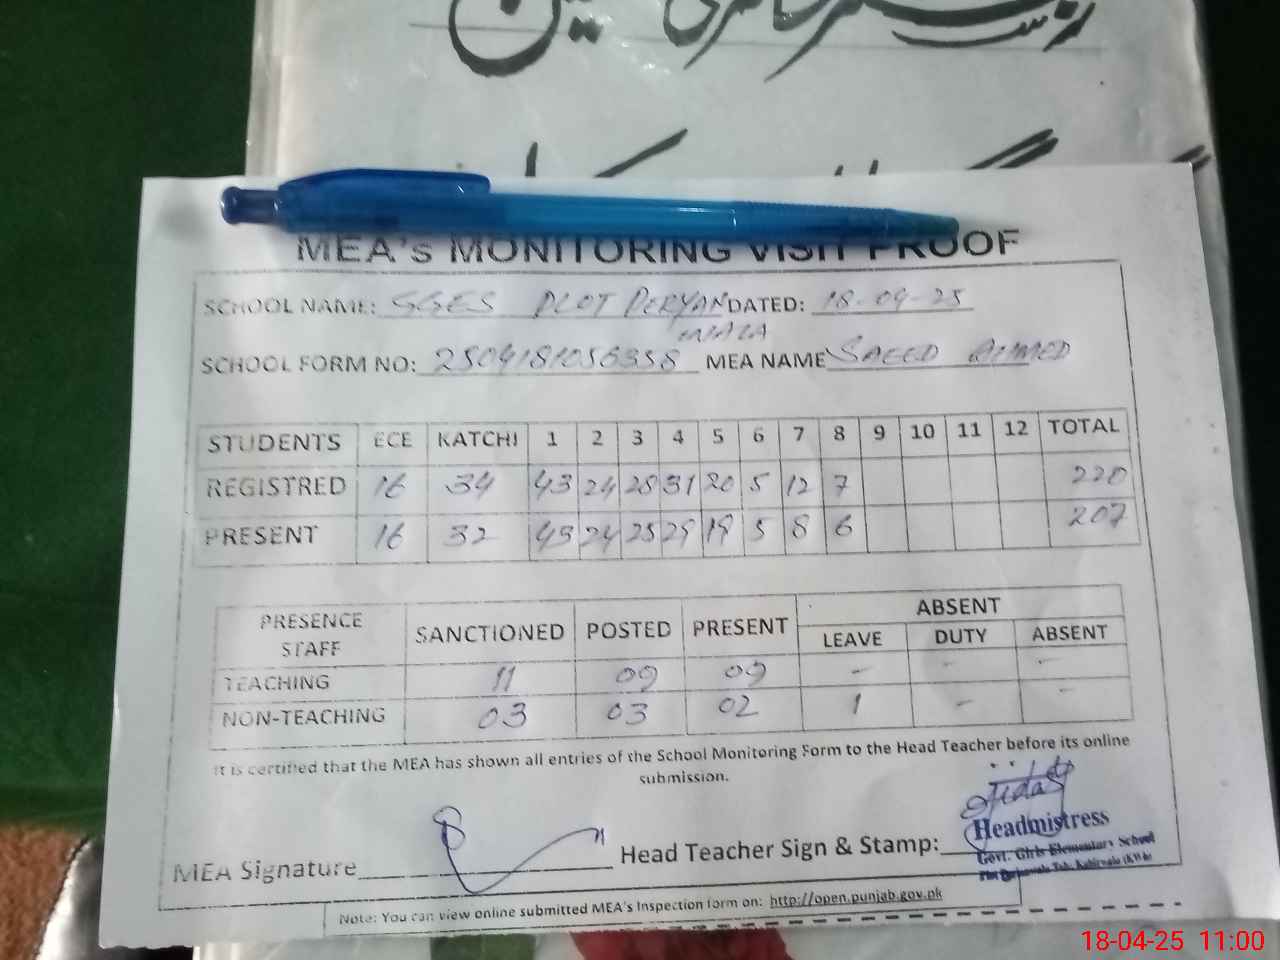 MEA's MONITORING VISIT PROOF
SCHOOL NAME: GGES PLOT PERYAN WALA DATED: 18-04-25
SCHOOL FORM NO: 2504181056358 MEA NAME SAEED AHMED
STUDENTS ECE KATCHI 1 2 3 4 5 6 7 8 9 10 11 12 TOTAL
REGISTRED 16 34 43 24 28 31 20 5 12 7 220
PRESENT 16 32 43 24 25 29 19 5 8 6 207
PRESENCE STAFF SANCTIONED POSTED PRESENT ABSENT
LEAVE DUTY ABSENT
TEACHING 11 09 09 - - -
NON-TEACHING 03 03 02 1 - -
It is certified that the MEA has shown all entries of the School Monitoring Form to the Head Teacher before its online
submission.
MEA Signature Head Teacher Sign & Stamp:
Headmistress
Govt. Girls Elementary School
Note: You can view online submitted MEA's Inspection form on: http://open.punjab.gov.pk
18-04-25 11:00